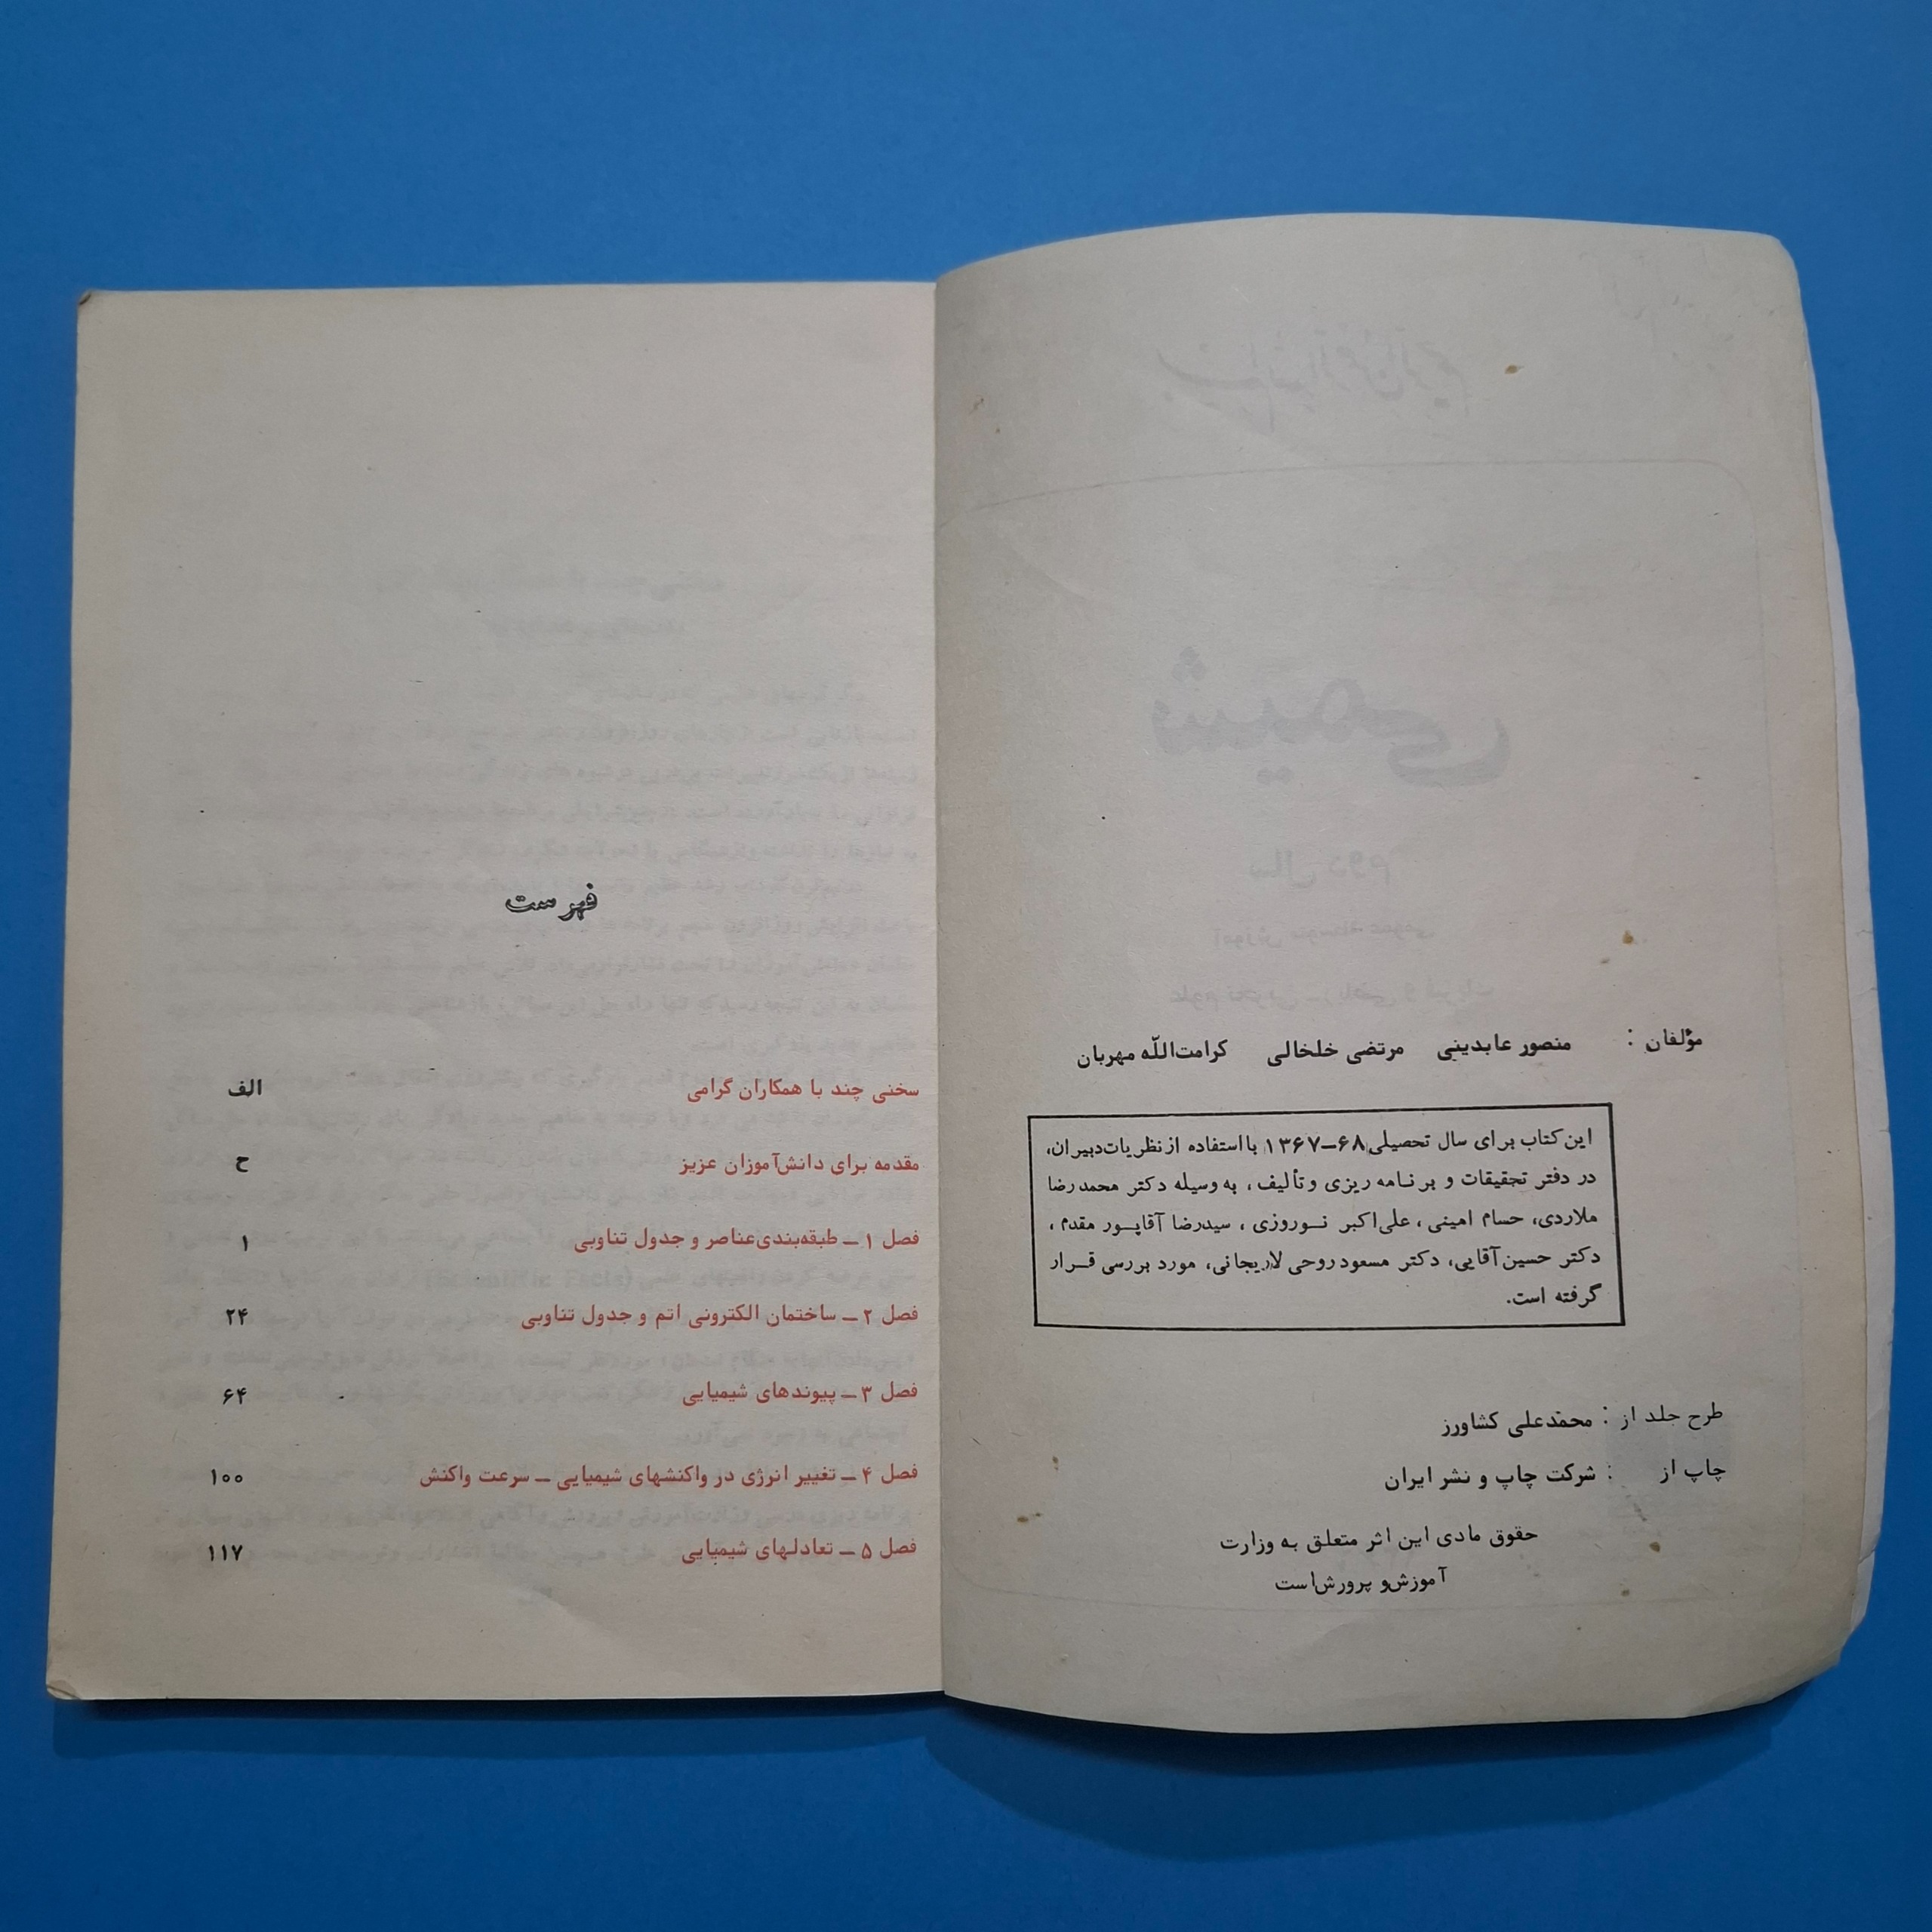 مؤلفان : منصور عابدینی مرتضی خلخالی کرامت‌اللّه مهربان
این کتاب برای سال تحصیلی ۶۸–۱۳۶۷ با استفاده از نظریات دبیران،
در دفتر تحقیقات و برنامه ریزی و تألیف، به وسیله دکتر محمدرضا
ملاردی، حسام امینی، علی‌اکبر نوروزی، سیدرضا آقاپور مقدم،
دکتر حسین آقایی، دکتر مسعود روحی لاریجانی، مورد بررسی قرار
گرفته است.
طرح جلد از : محمّدعلی کشاورز
چاپ از : شرکت چاپ و نشر ایران
حقوق مادی این اثر متعلق به وزارت
آموزش و پرورش است
فهرست
سخنی چند با همکاران گرامی الف
مقدمه برای دانش‌آموزان عزیز ح
فصل ۱ – طبقه‌بندی عناصر و جدول تناوبی ۱
فصل ۲ – ساختمان الکترونی اتم و جدول تناوبی ۲۴
فصل ۳ – پیوندهای شیمیایی ۶۴
فصل ۴ – تغییر انرژی در واکنشهای شیمیایی – سرعت واکنش ۱۰۰
فصل ۵ – تعادلهای شیمیایی ۱۱۷